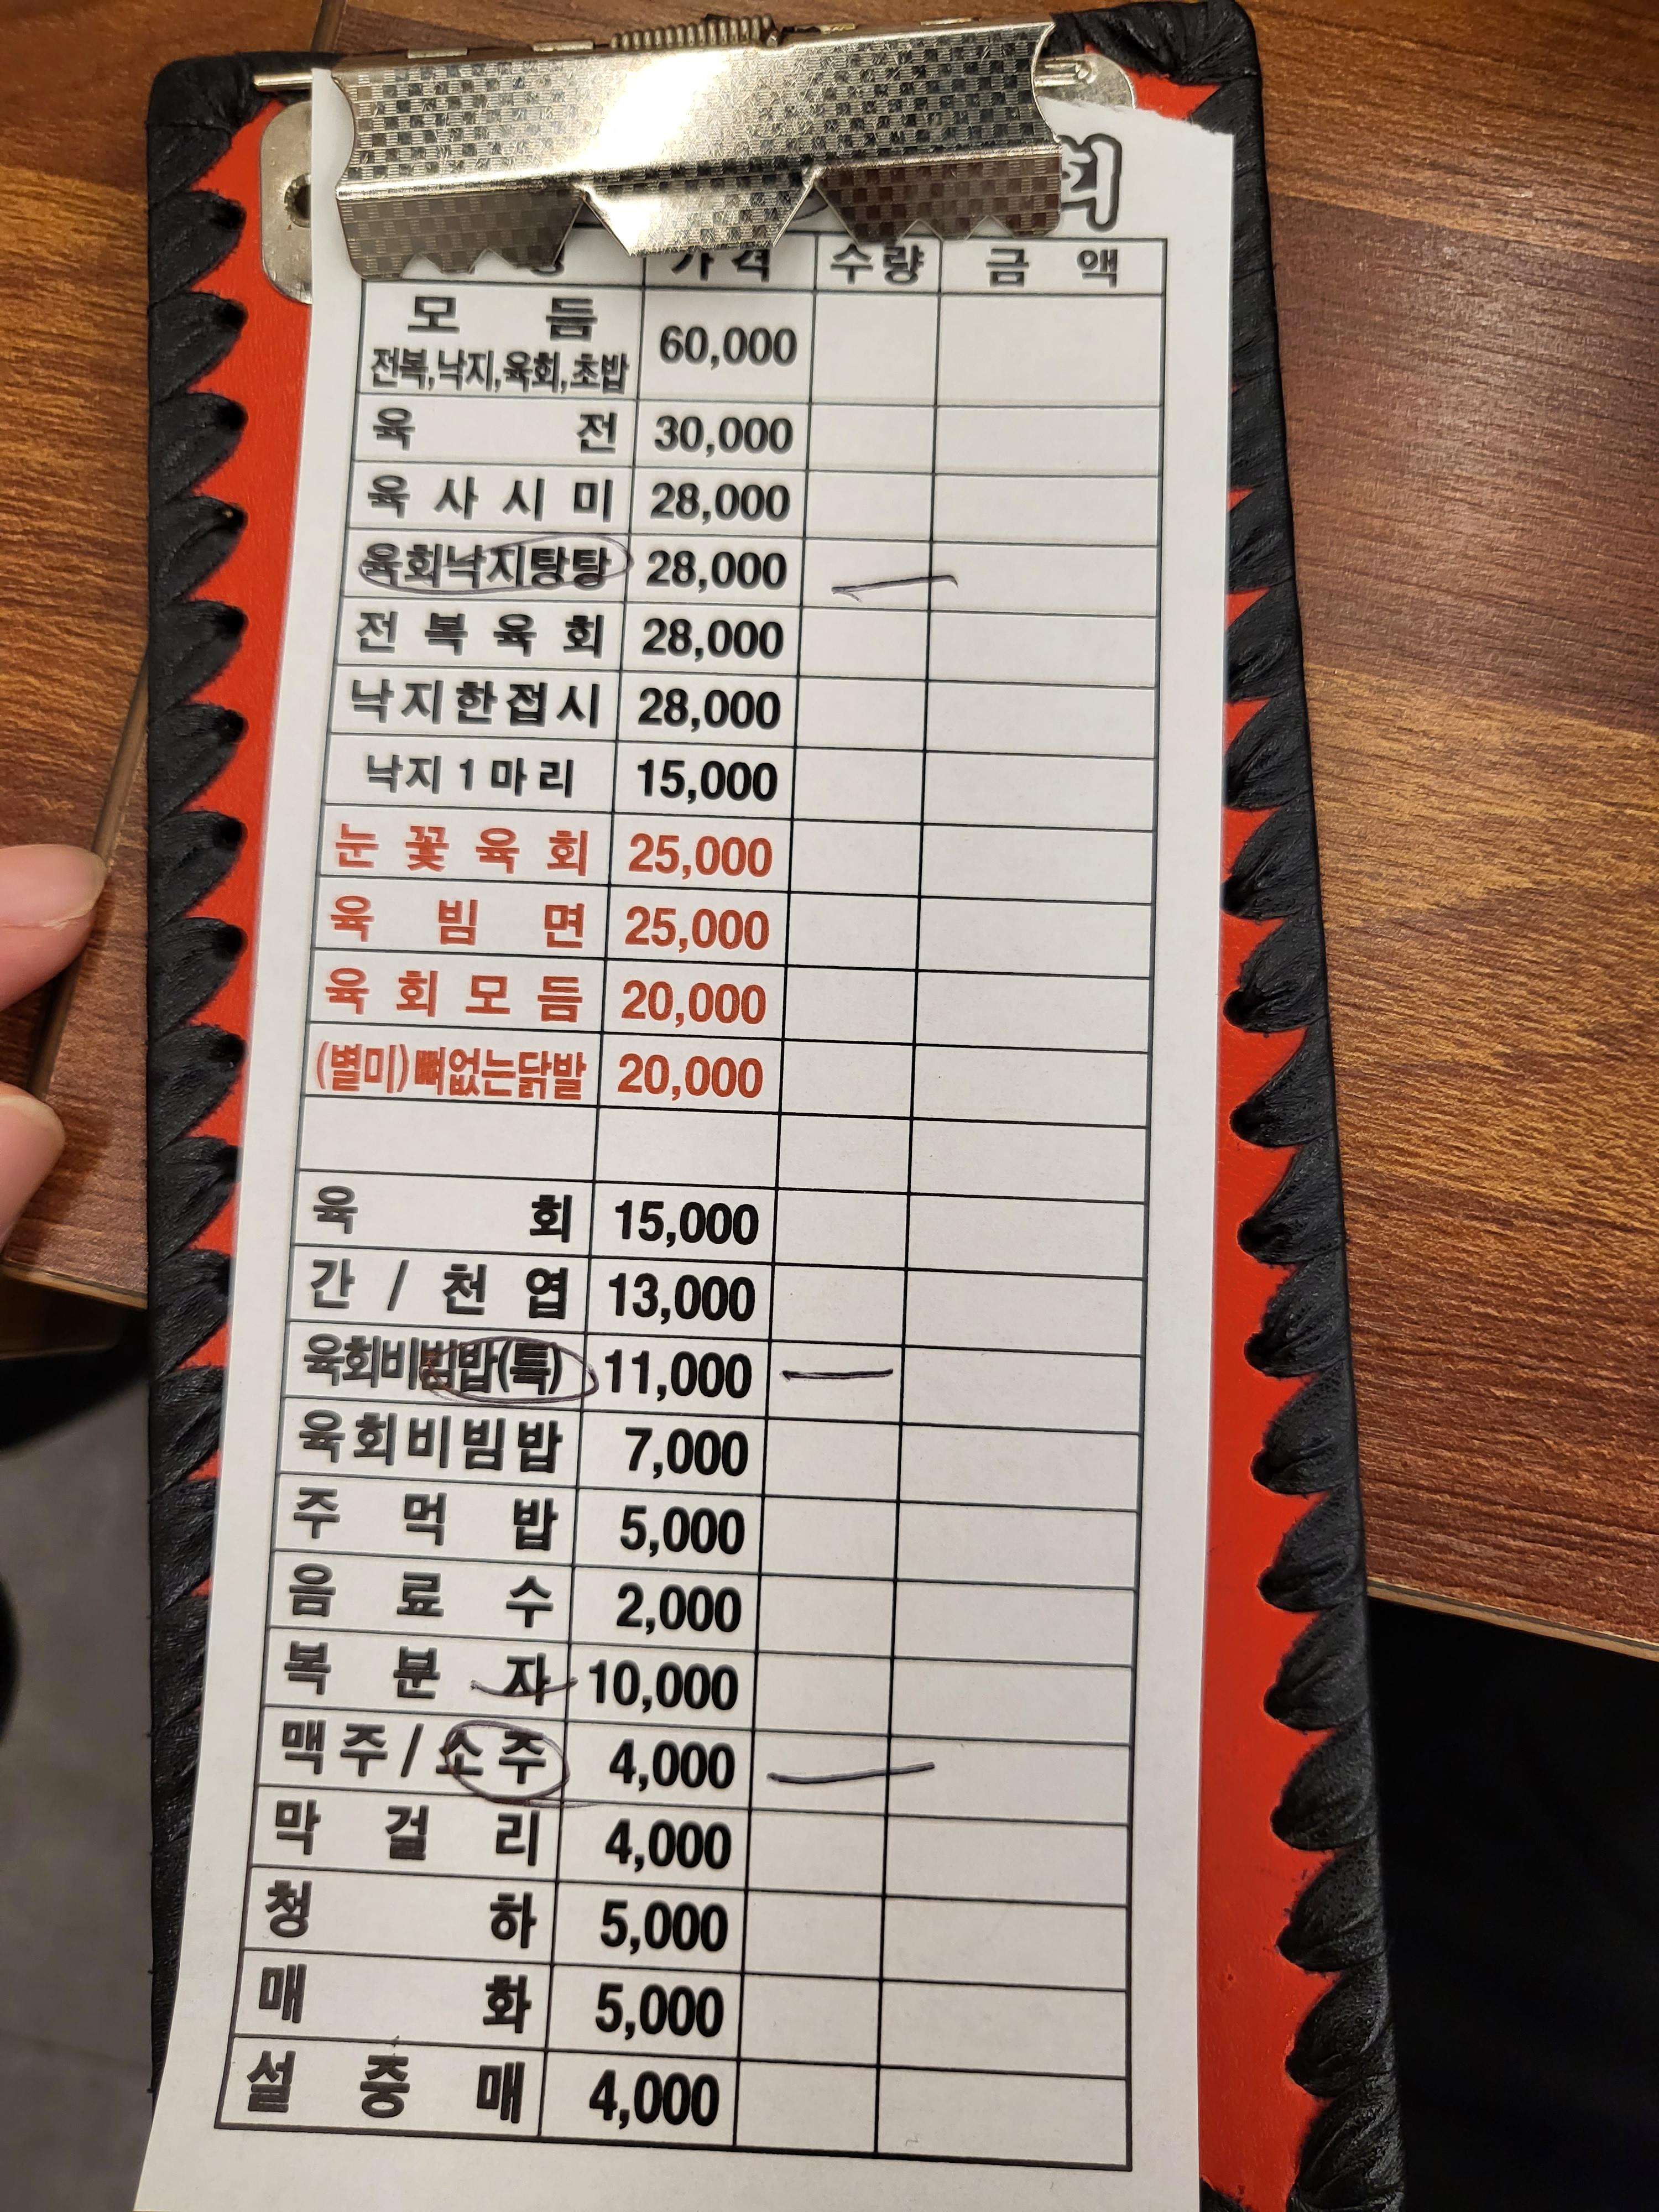 회
가격 수량 금액
모듬 60,000
전복,낙지,육회,초밥
육전 30,000
육사시미 28,000
육회낙지탕탕 28,000 一
전복육회 28,000
낙지한접시 28,000
낙지1마리 15,000
눈꽃육회 25,000
육빔면 25,000
육회모듬 20,000
(별미)뼈없는닭발 20,000
육회 15,000
간/천엽 13,000
육회비빔밥(특) 11,000 一
육회비빔밥 7,000
주먹밥 5,000
음료수 2,000
복분자 10,000
맥주/소주 4,000 一
막걸리 4,000
청하 5,000
매화 5,000
설중매 4,000